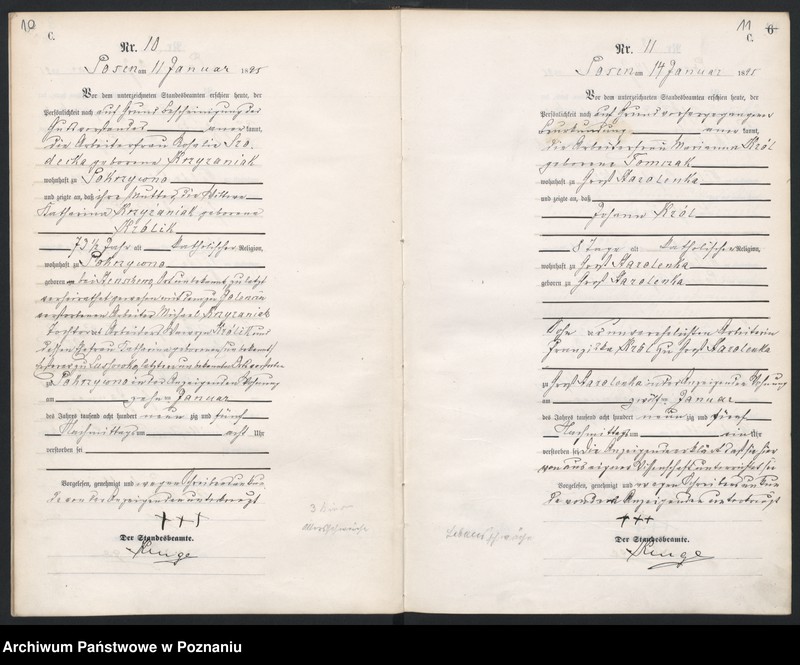 10
C.
Nr. 10
Posen am 11 Januar 1895
Vor dem unterzeichneten Standesbeamten erschien heute, der
Persönlichkeit nach auf Grund Bescheinigung des
Gutsvorstandes anerkannt,
die Arbeiterfrau Rosalie
geborene Krzyzaniak
wohnhaft zu Pokrzywno
und zeigte an, daß ihre Mutter, die Wittwe
Katharina Krzyżaniak geborene
Królik
73 1/2 Jahr alt katholischer Religion,
wohnhaft zu Pokrzywno
geboren bei unbekannt, zuletzt
verheirathet gewesen mit dem zu
verstorbenen Arbeiter Michael Krzyzaniak
Tochter des Arbeiters Królik und
dessen Ehefrau Katharina geborenen unbekannt
zu letzteren unbekannten
zu Pokrzywno in der Anzeigenden Wohnung
am zehn Januar
des Jahres tausend acht hundert neunzig und fünf
Nachmittags um acht Uhr
verstorben sei
Vorgelesen, genehmigt und wegen Schreibensunkun
de von der Anzeigenden unterkreuzt
+++
Der Standesbeamte.
Runge
3
Altersschwäche
11
6
C.
Nr. 11
Posen am 14 Januar 1895
Vor dem unterzeichneten Standesbeamten erschien heute, der
Persönlichkeit nach auf Grund vorhergegangener
Beurkundung anerkannt,
die Arbeiterfrau Marianna Król
geborene Tomczak
wohnhaft zu Groß Starolenka
und zeigte an, daß
Johann Król
8 Tage alt katholischer Religion,
wohnhaft zu Groß Starolenka
geboren zu Groß Starolenka
Sohn der unverehelichten Arbeiterin
Franziska Król zu Groß Starolenka
zu Groß Starolenka in der Anzeigenden Wohnung
am zwölf Januar
des Jahres tausend acht hundert neunzig und fünf
Nachmittags um ein Uhr
verstorben sei. Die Anzeigende erklärt daß sie hier
von aus eigner Wissenschaft unterrichtet sei
Vorgelesen, genehmigt und wegen Schreibensunkun
de von der Anzeigenden unterkreuzt
+++
Der Standesbeamte.
Runge
Lebensschwäche
Archiwum Państwowe w Poznaniu